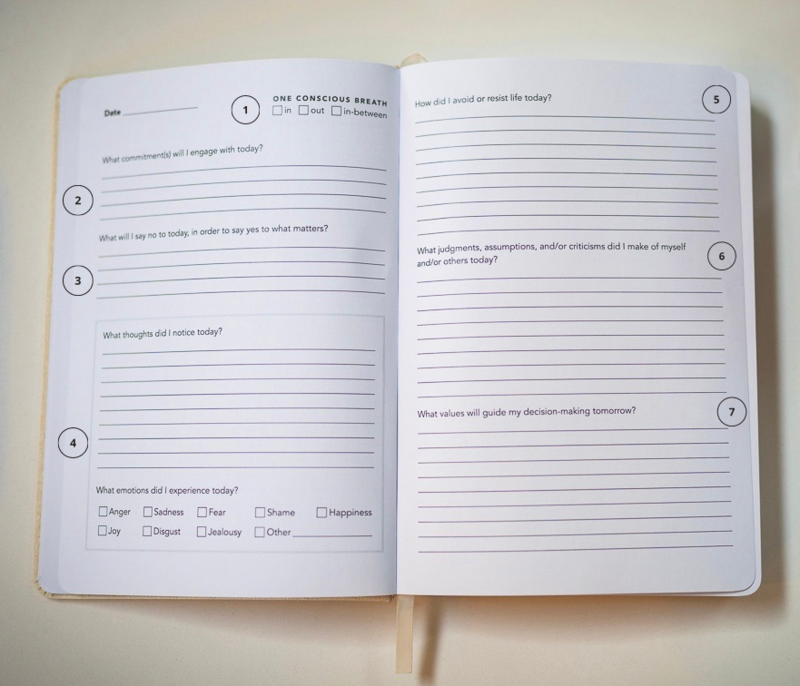 Date
1
ONE CONSCIOUS BREATH
in out in-between
What commitment(s) will I engage with today?
2
What will I say no to today, in order to say yes to what matters?
3
What thoughts did I notice today?
4
What emotions did I experience today?
Anger Sadness Fear Shame Happiness
Joy Disgust Jealousy Other
How did I avoid or resist life today?
5
What judgments, assumptions, and/or criticisms did I make of myself
and/or others today?
6
What values will guide my decision-making tomorrow?
7